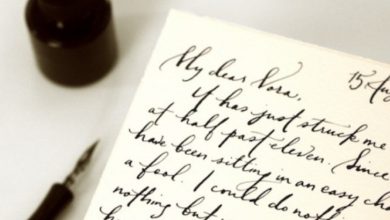 15 Aug
My dear Nora,
It has just struck me
at half past eleven. Since
have been sitting in an easy cha
a fool. I could do noth
nothing but